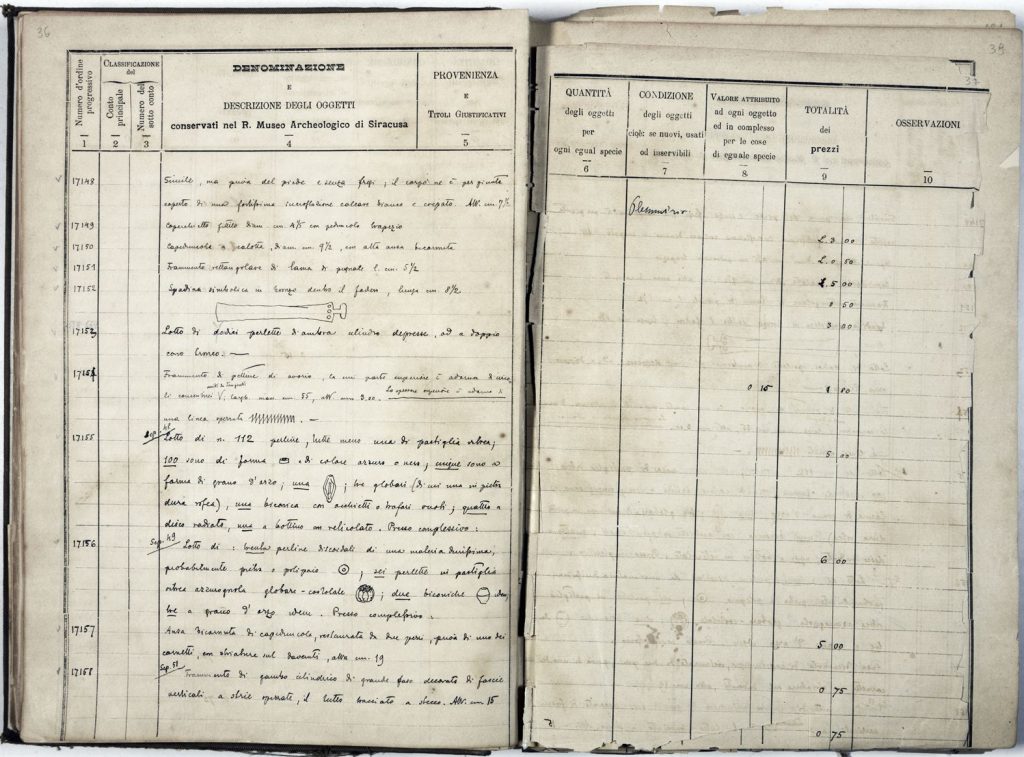 36
Numero d'ordine progressivo
CLASSIFICAZIONE
del
Conto principale
Numero del sotto conto
DENOMINAZIONE
E
DESCRIZIONE DEGLI OGGETTI
conservati nel R. Museo Archeologico di Siracusa
PROVENIENZA
E
TITOLI GIUSTIFICATIVI
1 2 3 4 5
17148 Simile, ma priva del piede e senza fregi; il corpo ne è per giunta
coperto di una fortissima incrostazione calcare bianca e crepata. Alt. cm. 7½
17149 Coperchietto fittile diam. cm. 4½ con peduncolo trapezio
17150 Capeduncola a calotta, diam. cm. 9½, con alta ansa bicornuta
17151 Frammento rettangolare di lama di pugnale l. cm. 5½
17152 Spadina simbolica in bronzo dentro il fodero, lunga cm. 8½
17153 Lotto di dodici perlette d'ambra cilindro depresse, ad a doppio
cono tronco. —
17154 Frammento di pettine di avorio, la cui parte superiore è adorna di
una linea spezzata
Sep. 48
17155 Lotto di n. 112 perline, tutte meno una di pastiglia vitrea;
100 sono di forma e di colore azzurro o nero; cinque sono a
forma di grano d'orzo; una ; tre globari (di cui una in pietra
dura rossa), una biconica con occhietti o trafori vuoti; quattro a
disco radiato, una a bottino con reticolato. Prezzo complessivo:
Sep. 49
17156 Lotto di: trenta perline discoidali di una materia durissima,
probabilmente pietra o polipaio ; sei perlette in pastiglia
vitrea azzurognola globare-costolate ; due biconiche idem,
tre a grano d'orzo idem. Prezzo complessivo.
17157 Ansa bicornuta di capeduncola, restaurata da due pezzi, priva di uno dei
cornetti, con striature sul davanti, alta cm. 19
Sep. 51
17158 Frammento di gambo cilindrico di grande vaso decorato di fascie
verticali, a strie spezzate, il tutto tracciato a stecco. Alt. cm 15
39
37
QUANTITÀ
degli oggetti
per
ogni egual specie
CONDIZIONE
degli oggetti
cioè: se nuovi, usati
od inservibili
VALORE ATTRIBUITO
ad ogni oggetto
ed in complesso
per le cose
di eguale specie
TOTALITÀ
dei
prezzi
OSSERVAZIONI
6 7 8 9 10
Plemmirio
L. 3 00
L. 0 50
L. 5 00
1 50
3 00
0 15 1 80
5 00
6 00
5 00
0 75
0 75